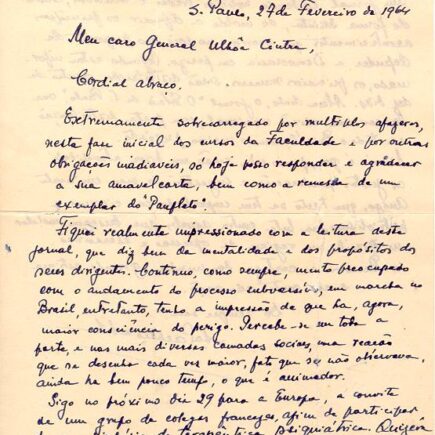 S. Paulo, 27 de Fevereiro de 1964
Meu caro General Ulhôa Cintra.
Cordial abraço.
Extremamente sobrecarregado por multiplos afazeres,
nesta fase inicial dos cursos da Faculdade e por outras
obrigações inadiaveis, só hoje posso responder e agradecer
a sua amavel carta, bem como a remessa de um
exemplar do "Panfleto".
Fiquei realmente impressionado com a leitura deste
jornal, que diz bem da mentalidade e dos propósitos dos
seus dirigentes. Continuo, como sempre, muito preocupado
com o andamento do processo subversivo, em marcha no
Brasil, entretanto, tenho a impressão de que ha, agora,
maior consciência do perigo. Percebe-se em toda a
parte, e nas mais diversas camadas sociais, uma reação
que se desenha cada vez maior, fato que se não observava,
ainda ha bem pouco tempo, o que é animador.
Sigo no próximo dia 29 para a Europa, a convite
de um grupo de colegas franceses, afim de participar
de terapêutica psiquiátrica. Quizera